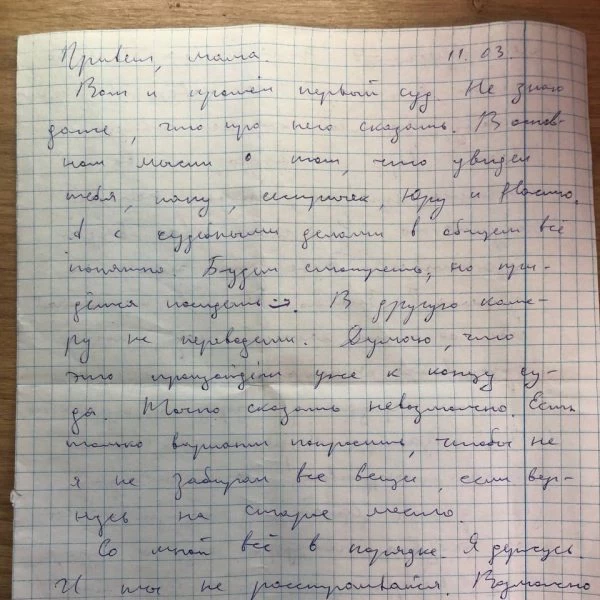 Привет, мама. 11.03.
Вот и прошёл первый суд. Не знаю
даже, что про него сказать. В основ-
ном мысли о том, что увидел
тебя, папу, сестричек, Юру и Настю.
А с судебными делами в общем всё
понятно. Будем смотреть, но при-
дётся посидеть :-). В другую каме-
ру не переводили. Думаю, что
это произойдёт уже к концу су-
да. Точно сказать невозможно. Есть
только вариант попросить, чтобы не
я не забирал все вещи, если вер-
нусь на старое место.
Со мной всё в порядке. Я держусь.
И ты не расстраивайся. Возможно